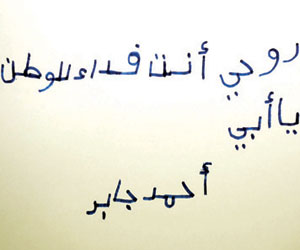 روحي أنت فداء للوطن
يا أبي
أحمد جابر